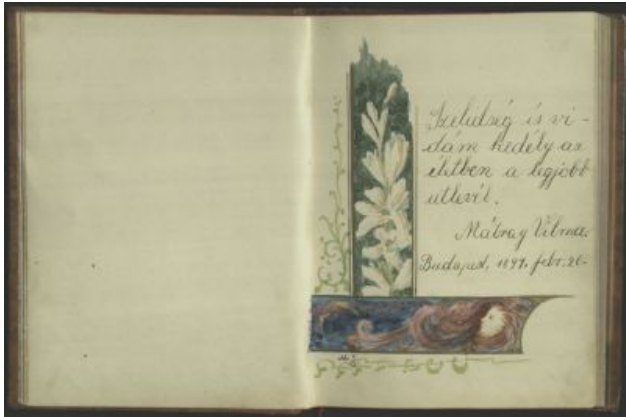 Szelidség és vi-
dám kedély az
életben a legjobb
útlevél.
Mátray Vilma.
Budapest, 1897. febr. 20.